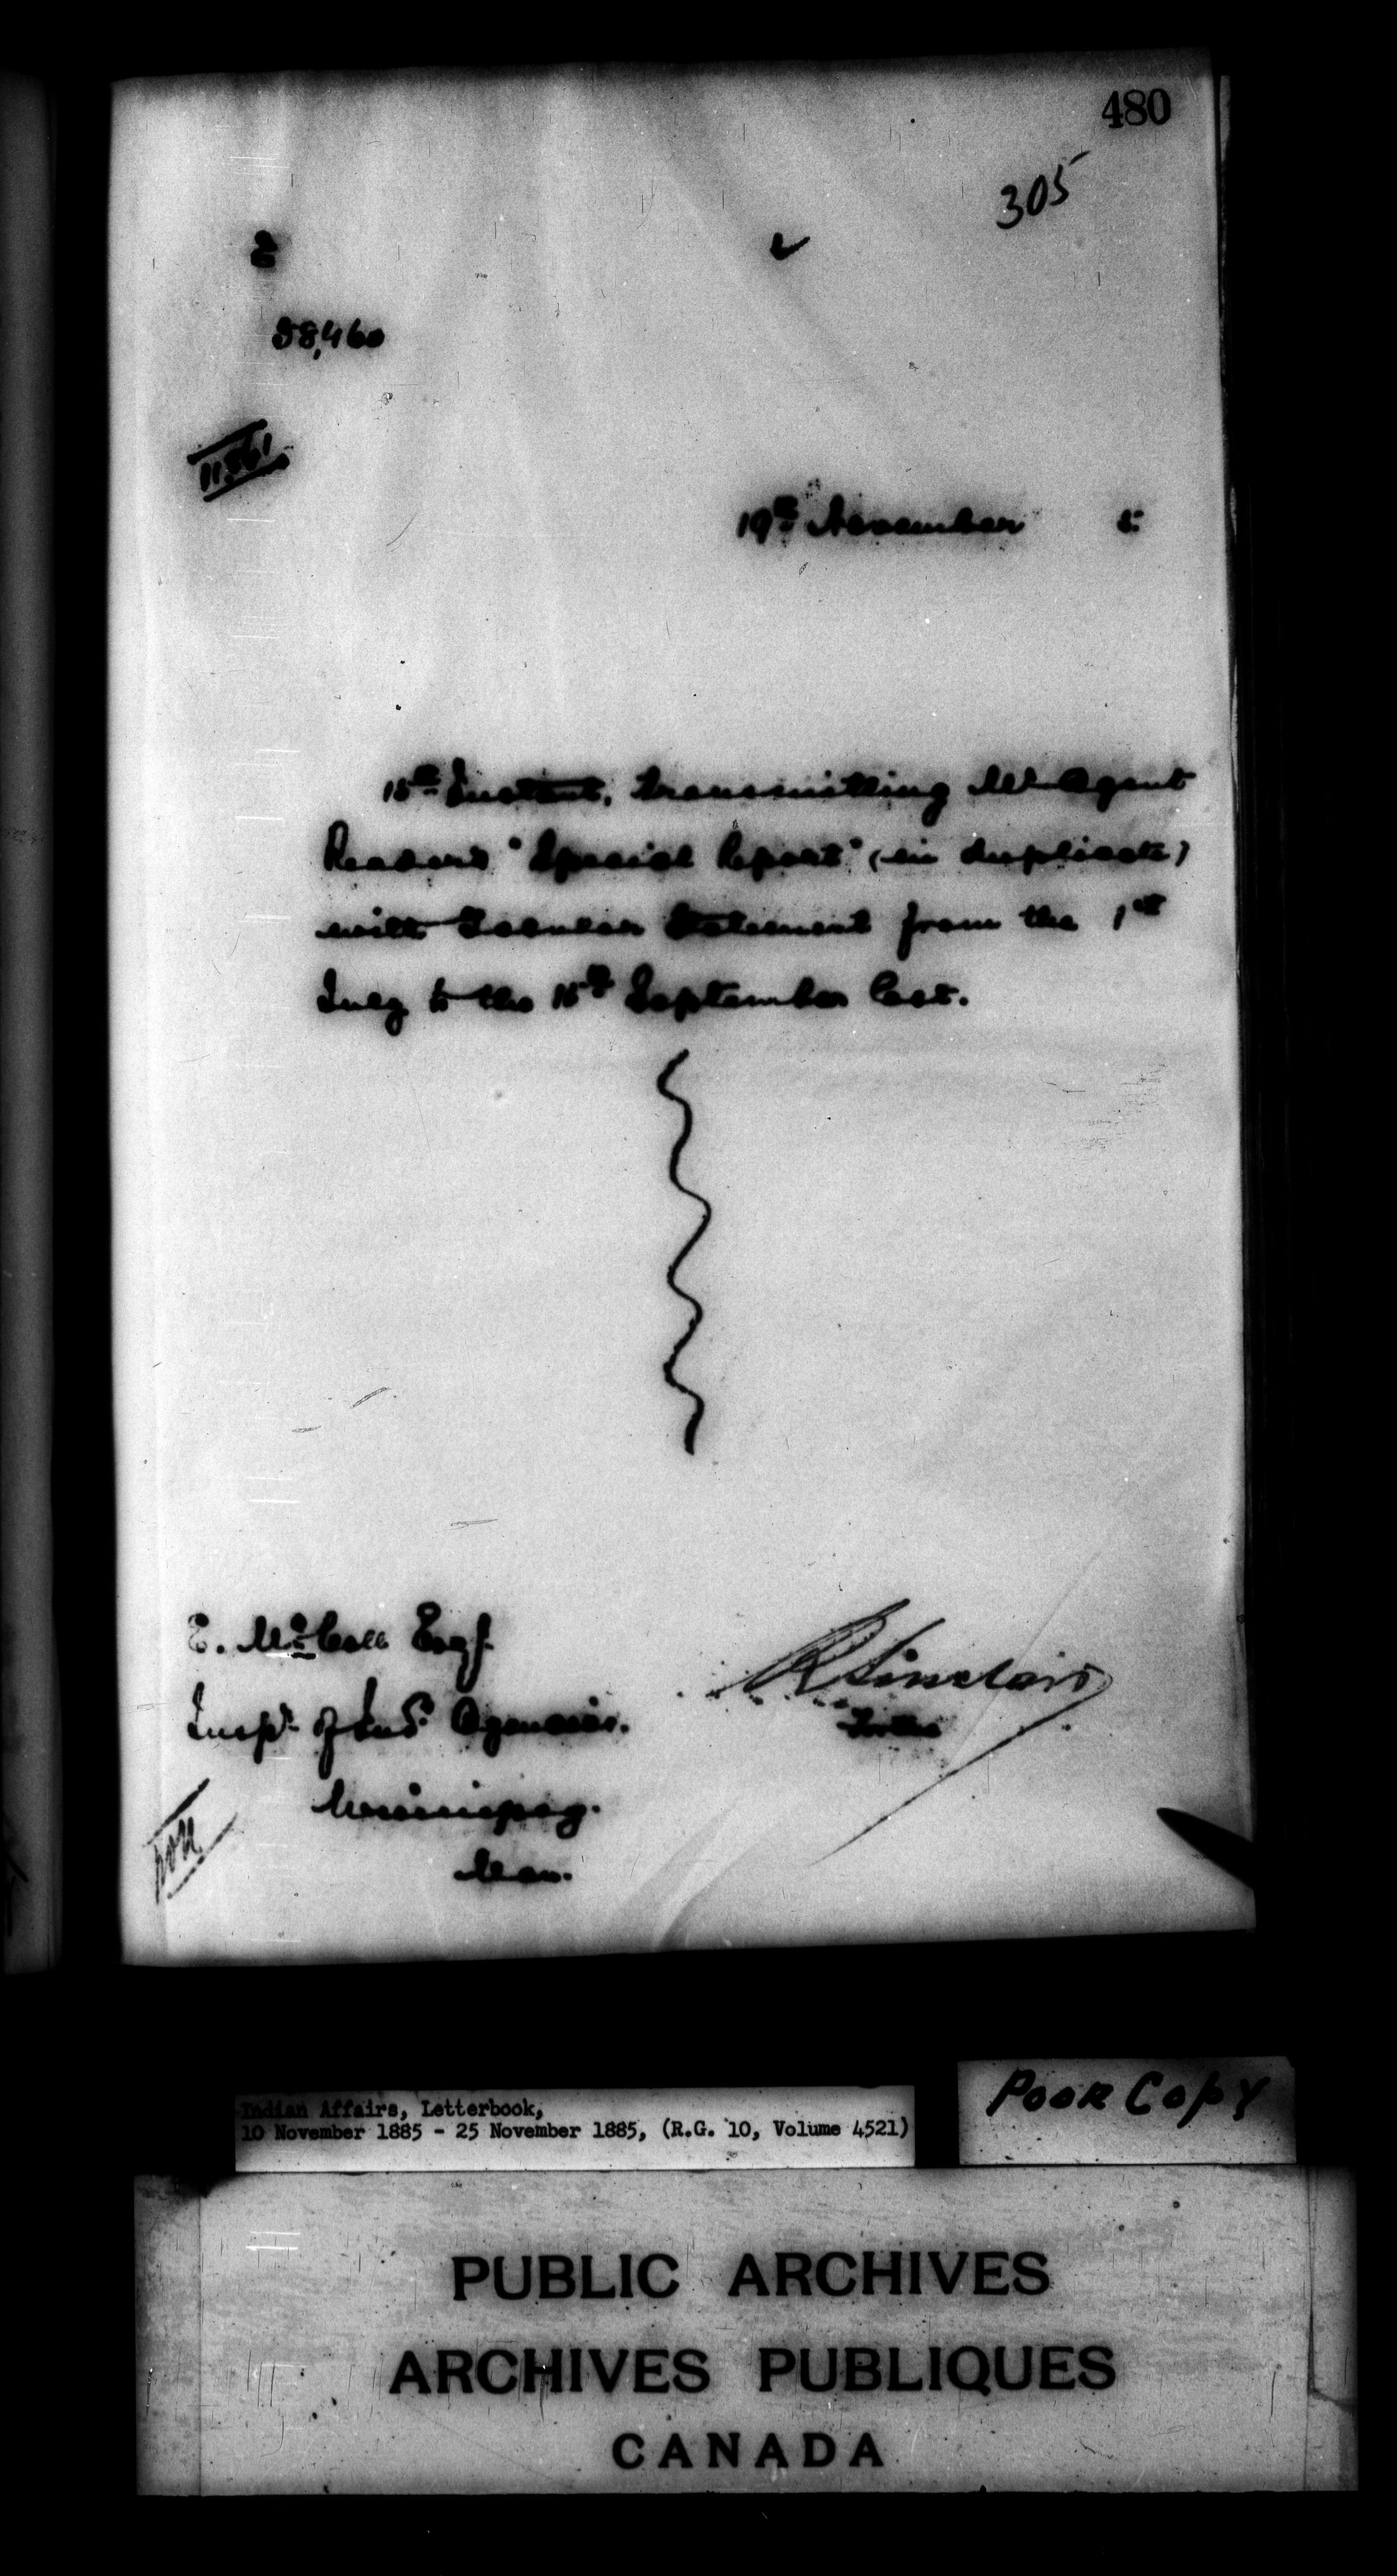 480
305
E
38,460
19th November 5
15th Instant, transmitting Mr. Agent
Reader's "Special Report" (in duplicate)
with Tabular Statement from the 1st
July to the 15th September last.
E. McColl Esq.
Insp. of Ind. Agencies.
Winnipeg.
Man.
R Sinclair
Indian Affairs, Letterbook,
10 November 1885 - 25 November 1885, (R.G. 10, Volume 4521)
POOR COPY
PUBLIC ARCHIVES
ARCHIVES PUBLIQUES
CANADA